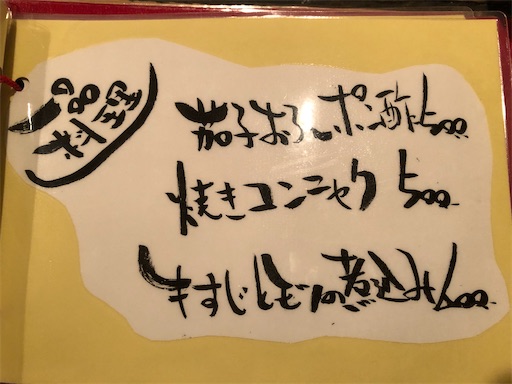 一品料理
茄子おろしポン酢 500-
焼きコンニャク 500-
牛すじともつの煮込み 600-